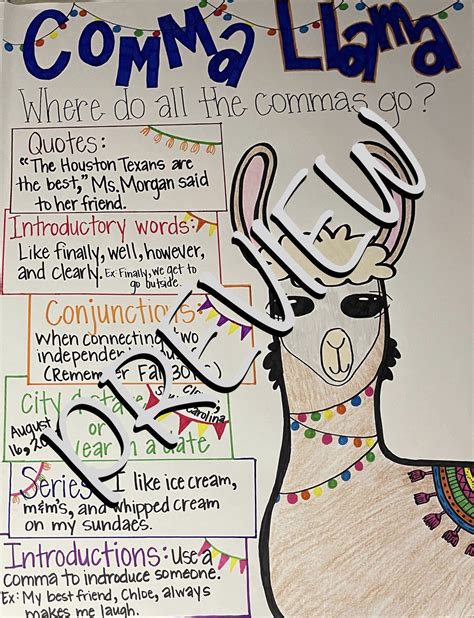 Comma Llama
Where do all the commas go?
Quotes:
"The Houston Texans are
the best," Ms. Morgan said
to her friend.
Introductory words:
Like finally, well, however,
and clearly. Ex: Finally, we get to
go outside.
Conjunctions:
When connecting two
independent
(Remember
City
Carolina
August
or
16, 20
year in a date
Series: I like ice cream,
m&m's, and whipped cream
on my sundaes.
Introductions: Use a
comma to indroduce someone.
Ex: My best friend, Chloe, always
makes me laugh.
PREVIEW